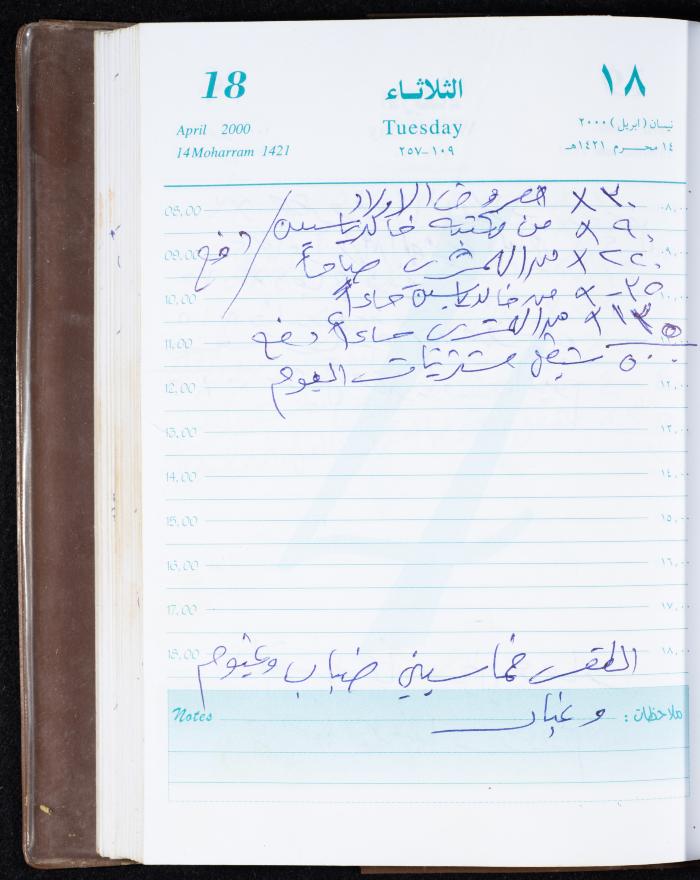 18 الثلاثاء ١٨
April 2000 Tuesday نيسان (ابريل) ٢٠٠٠
14 Moharram 1421 ٢٥٧-١٠٩ ١٤ محرم ١٤٢١هـ
08,00 ٣٠ X مصروف الاولاد ٠٨,٠٠
٩٠ X من مكتبة خالد ياسين دفع
09,00 ٢٢٠ X من صباحاً ٠٩,٠٠
10,00 ٢٥- X من خالد ياسين مساءاً ١٠,٠٠
11,00 ١٣٥ X من مساءاً دفع
٥٠٠ شيقل مشتريات اليوم
12,00 ١٢,٠٠
13,00 ١٣,٠٠
14,00 ١٤,٠٠
15,00 ١٥,٠٠
16,00 ١٦,٠٠
17,00 ١٧,٠٠
18,00 الطقس خماسيني ضباب وغيوم ١٨,٠٠
Notes وغبار ملاحظات :